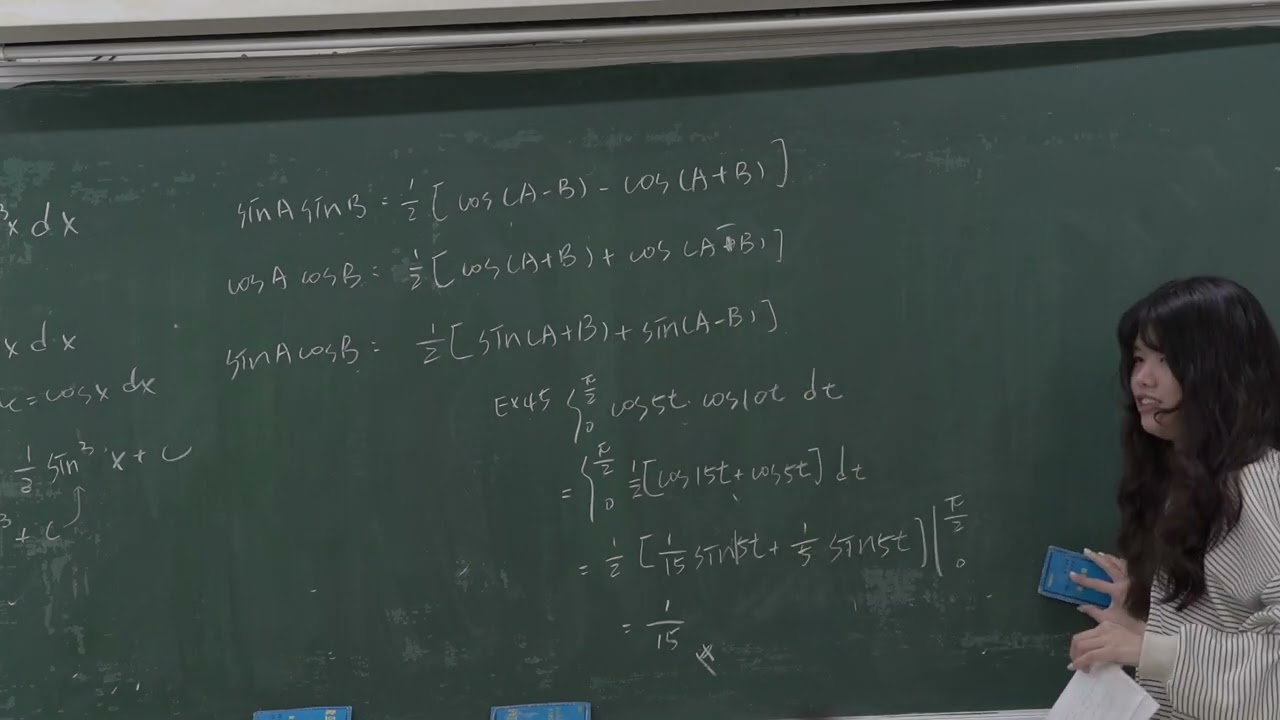 ³x dx
x dx
u = cosx dx
1/2 sin³ x + c
³ + c
sinA sinB = 1/2 [ cos(A-B) - cos(A+B) ]
cosA cosB = 1/2 [ cos(A+B) + cos(A-B) ]
sinA cosB = 1/2 [ sin(A+B) + sin(A-B) ]
EX45 ∫₀^(π/2) cos5t · cos10t dt
= ∫₀^(π/2) 1/2 [cos15t + cos5t] dt
= 1/2 [ 1/15 sin15t + 1/5 sin5t ] |₀^(π/2)
= 1/15